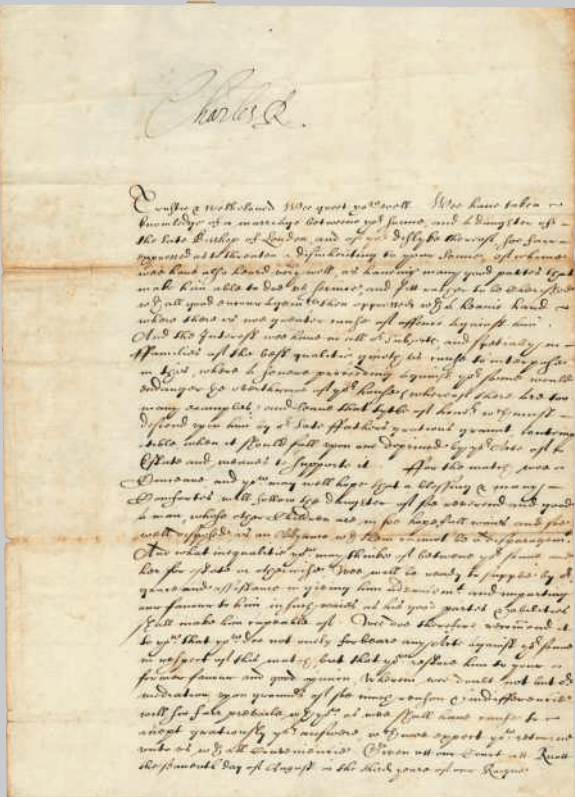 Charles R.
Trustie & welbeloved Wee greet you well. Wee have taken
knowledge of a marriage betweene yor sonne, and a daughter of
the late Bishop of London, and of yor dislyke thereof, soe farre
expressed as to threaten a disinheriting to your sonne, of whome
wee have also heard very well, as having many good partes that
make him able to doe us service, and fitt rather to be cherished
wth all good encouragemt then oppressed wth a heavie hand
where there is no greater cause of offence against him.
And the Interest wee have in all or subjects, and specially in
ffamilies of the best qualitie giveth us cause to interpose
in this, where a severe proceeding against yor sonne would
endanger the overthrowe of yor house (whereof there are too
many examples) and leave that tytle of honor wch must
descend upon him by or late ffathers gratious graunt, contemp-
tible, when it should fall upon one deprived by yor Acte of
Estate and meanes to supporte it. ffor the match, wee
conceave and you may well hope that a blessing & many
Comfortes will follow the daughter of soe reverend and good
a man, whose other Children are in soe hopefull waies and soe
well disposed as an Alyance wth them cannot be a disparagemt
And what inequalitie you may thinke of betweene yor sonne and
her for estate or otherwise Wee wilbe ready to supplie by or
grace and assistance in giving him advancemt and imparting
our favour to him in such waies as his good partes & abilities
shall make him capeable of. Wee doe therefore recomend it
to you that you doe not only forbeare any Acte against yor sonne
in respect of this match, but that you restore him to your
former favour and good opinion, Wherein wee doubt not but or
mediation upon grounds of soe much reason & indifferencie
will soe farr prevaile wth you as wee shall have cause to
accept gratiously yor answere, wch wee expect you retourne
unto us wth all conveniencie. Given att our Court att
the seaventh day of August in the third yeare of our Raigne